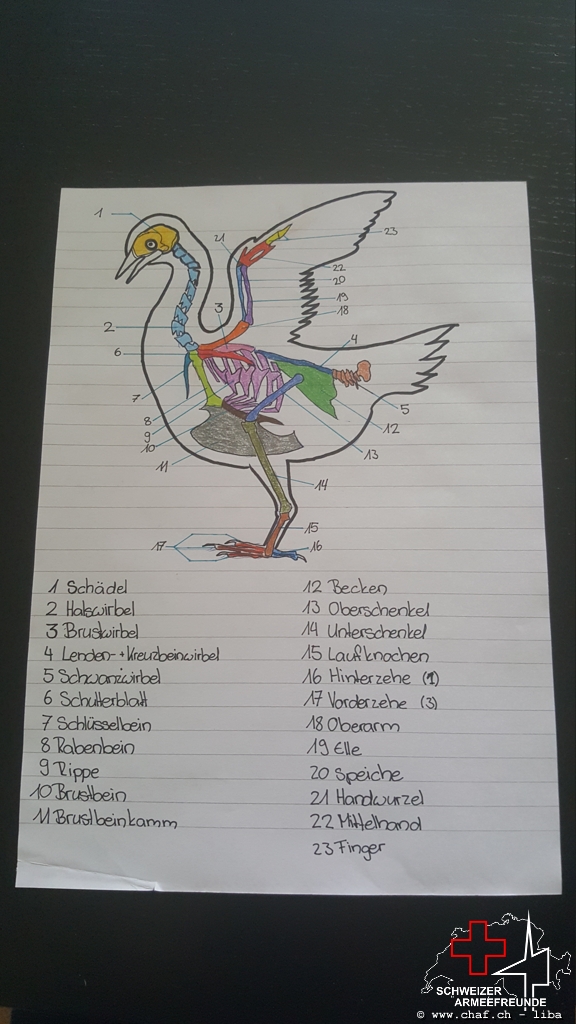 1
21
23
22
20
19
3
18
2
4
6
7
5
8
12
9
10
13
11
14
15
17
16
1 Schädel
2 Halswirbel
3 Brustwirbel
4 Lenden-+Kreuzbeinwirbel
5 Schwanzwirbel
6 Schulterblatt
7 Schlüsselbein
8 Rabenbein
9 Rippe
10 Brustbein
11 Brustbeinkamm
12 Becken
13 Oberschenkel
14 Unterschenkel
15 Laufknochen
16 Hinterzehe (1)
17 Vorderzehe (3)
18 Oberarm
19 Elle
20 Speiche
21 Handwurzel
22 Mittelhand
23 Finger
SCHWEIZER
ARMEEFREUNDE
© www.chaf.ch - liba